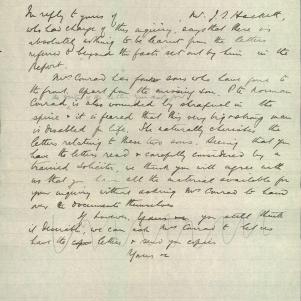 In reply to yours of Mr. J. I. Hackett,
who has charge of this inquiry, says that there is
absolutely nothing to be learned from the letters
referred to beyond the facts set out by him in the
Report.
Mrs Conrad has four sons who have gone to
the front. Apart from the missing son. Pte Norman
Conrad, is also wounded by shrapnel in the
spine & it is feared that this very big strong man
is disabled for life. She naturally cherishes the
letters relating to these two sons. Seeing that you
have the letters read & carefully considered by a
trained solicitor, we think you will agree with
us that you have all the material available for
your inquiry without asking Mrs Conrad to hand
over documents themselves
If however, you still think
it desirable, we can ask Mrs Conrad to let us
have the letters & send you copies
Yours